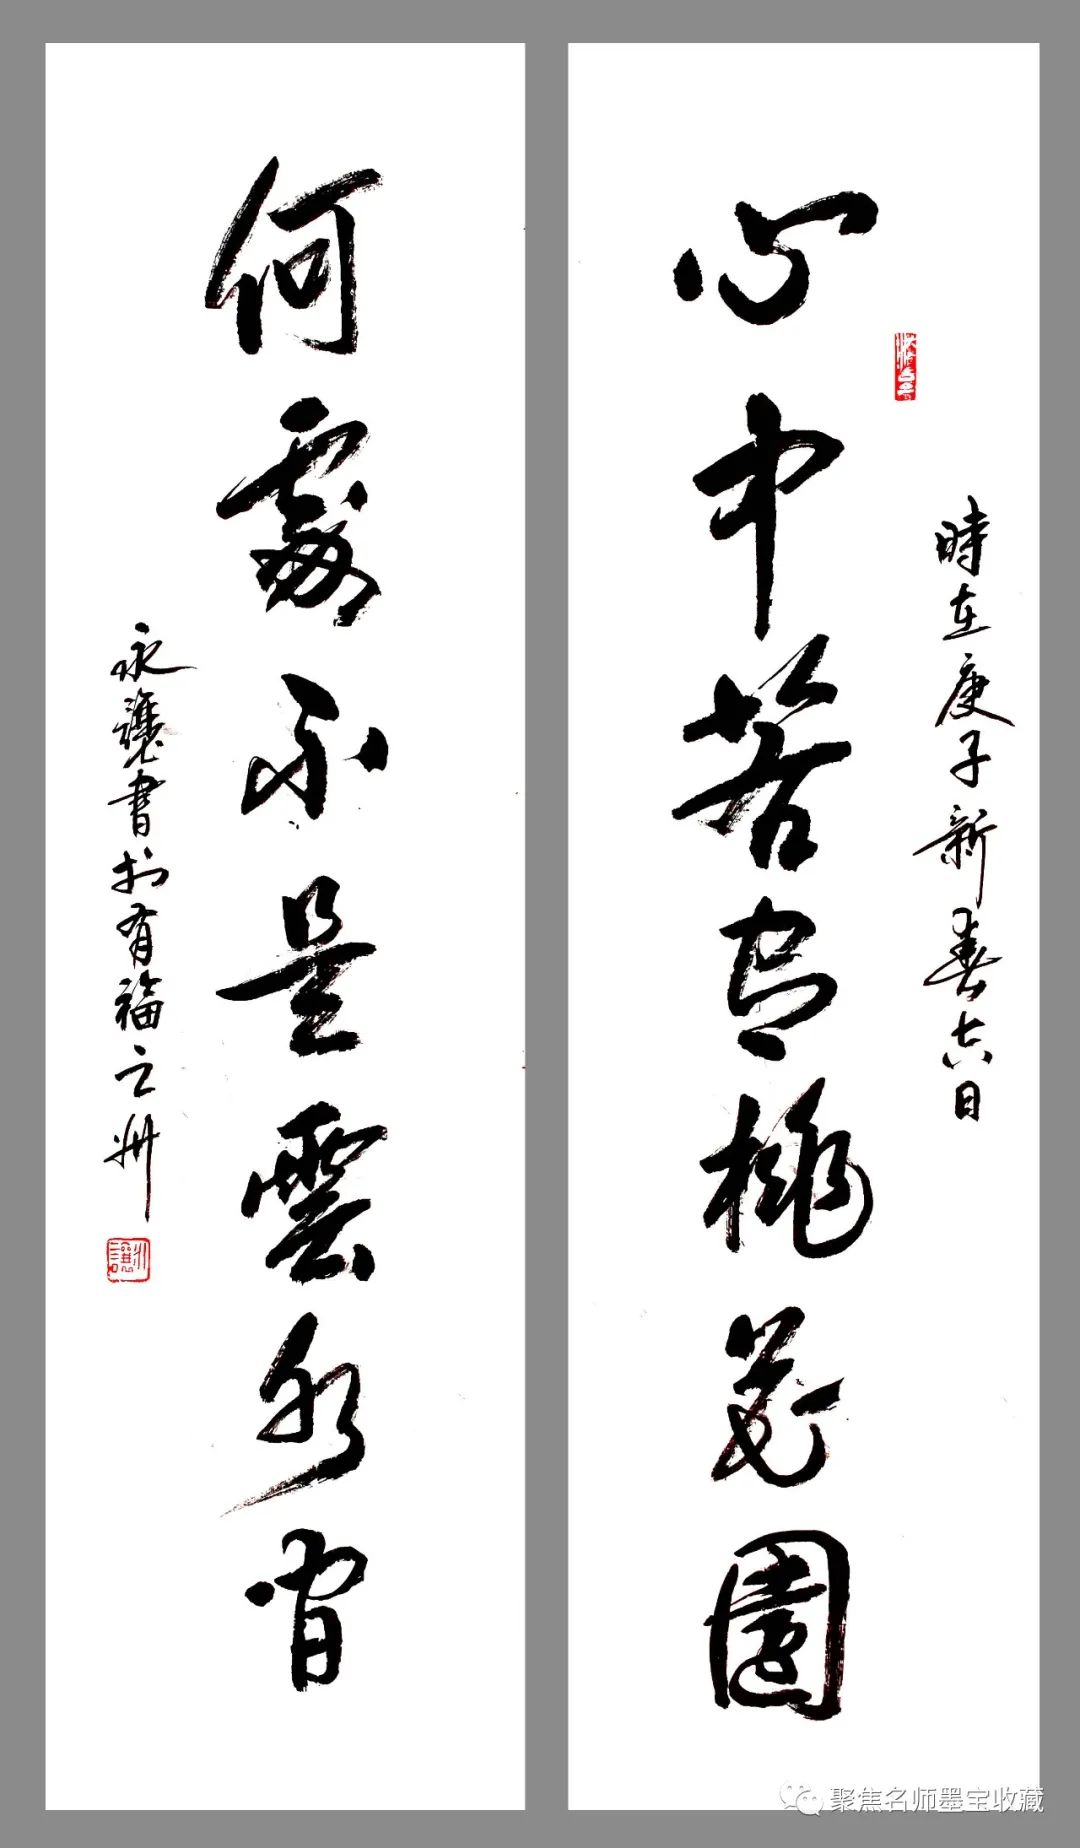 時在庚子新春六日
心中若有桃花園
何處不是雲水間
永讓書於有福之州
永讓
聚焦名师墨宝收藏